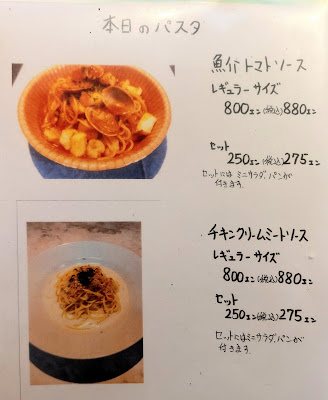 本日のパスタ
魚介トマトソース
レギュラーサイズ
800エン(税込)880エン
セット
250エン(税込)275エン
セットには ミニサラダ、パンが
付きます。
チキンクリームミートソース
レギュラーサイズ
800エン(税込)880エン
セット
250エン(税込)275エン
セットにはミニサラダ、パンが
付きます。